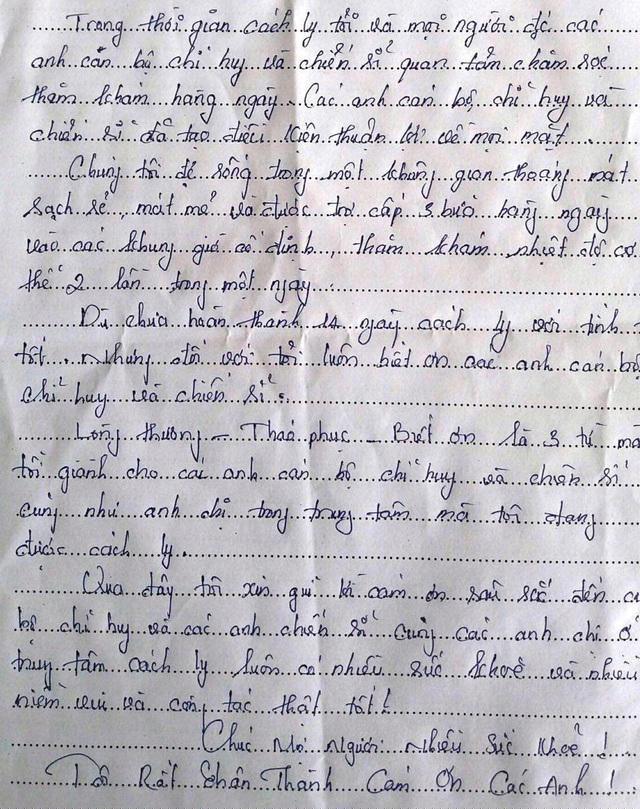 Trong thời gian cách ly tôi và mọi người đc các
anh cán bộ chỉ huy và chiến sĩ quan tâm chăm sóc
thăm khám hàng ngày. Các anh cán bộ chỉ huy và
chiến sĩ đã tạo điều kiện thuận lợi về mọi mặt.
Chúng tôi đc sống trong một không gian thoáng mát
sạch sẽ, mát mẻ và được trợ cấp 3 bữa hàng ngày
vào các khung giờ cố định, thăm khám nhiệt độ cơ
thể 2 lần trong một ngày.
Dù chưa hoàn thành 14 ngày cách ly với tình
tốt. Nhưng đối với tôi luôn biết ơn các anh cán bộ
chỉ huy và chiến sĩ.
Lòng thương - Thao phục - Biết ơn là 3 từ mà
tôi giành cho các anh cán bộ chỉ huy và chiến sĩ
cũng như anh chị trong trung tâm mà tôi đang
được cách ly.
Qua đây tôi xin gửi lời cảm ơn sâu sắc đến c
bộ chỉ huy và các anh chiến sĩ cùng các anh chị ở
trung tâm cách ly luôn có nhiều sức khoẻ và nhiều
niềm vui và công tác thật tốt!
Chúc Mọi Người Nhiều Sức Khoẻ!
Tôi Rất Chân Thành Cảm Ơn Các Anh!